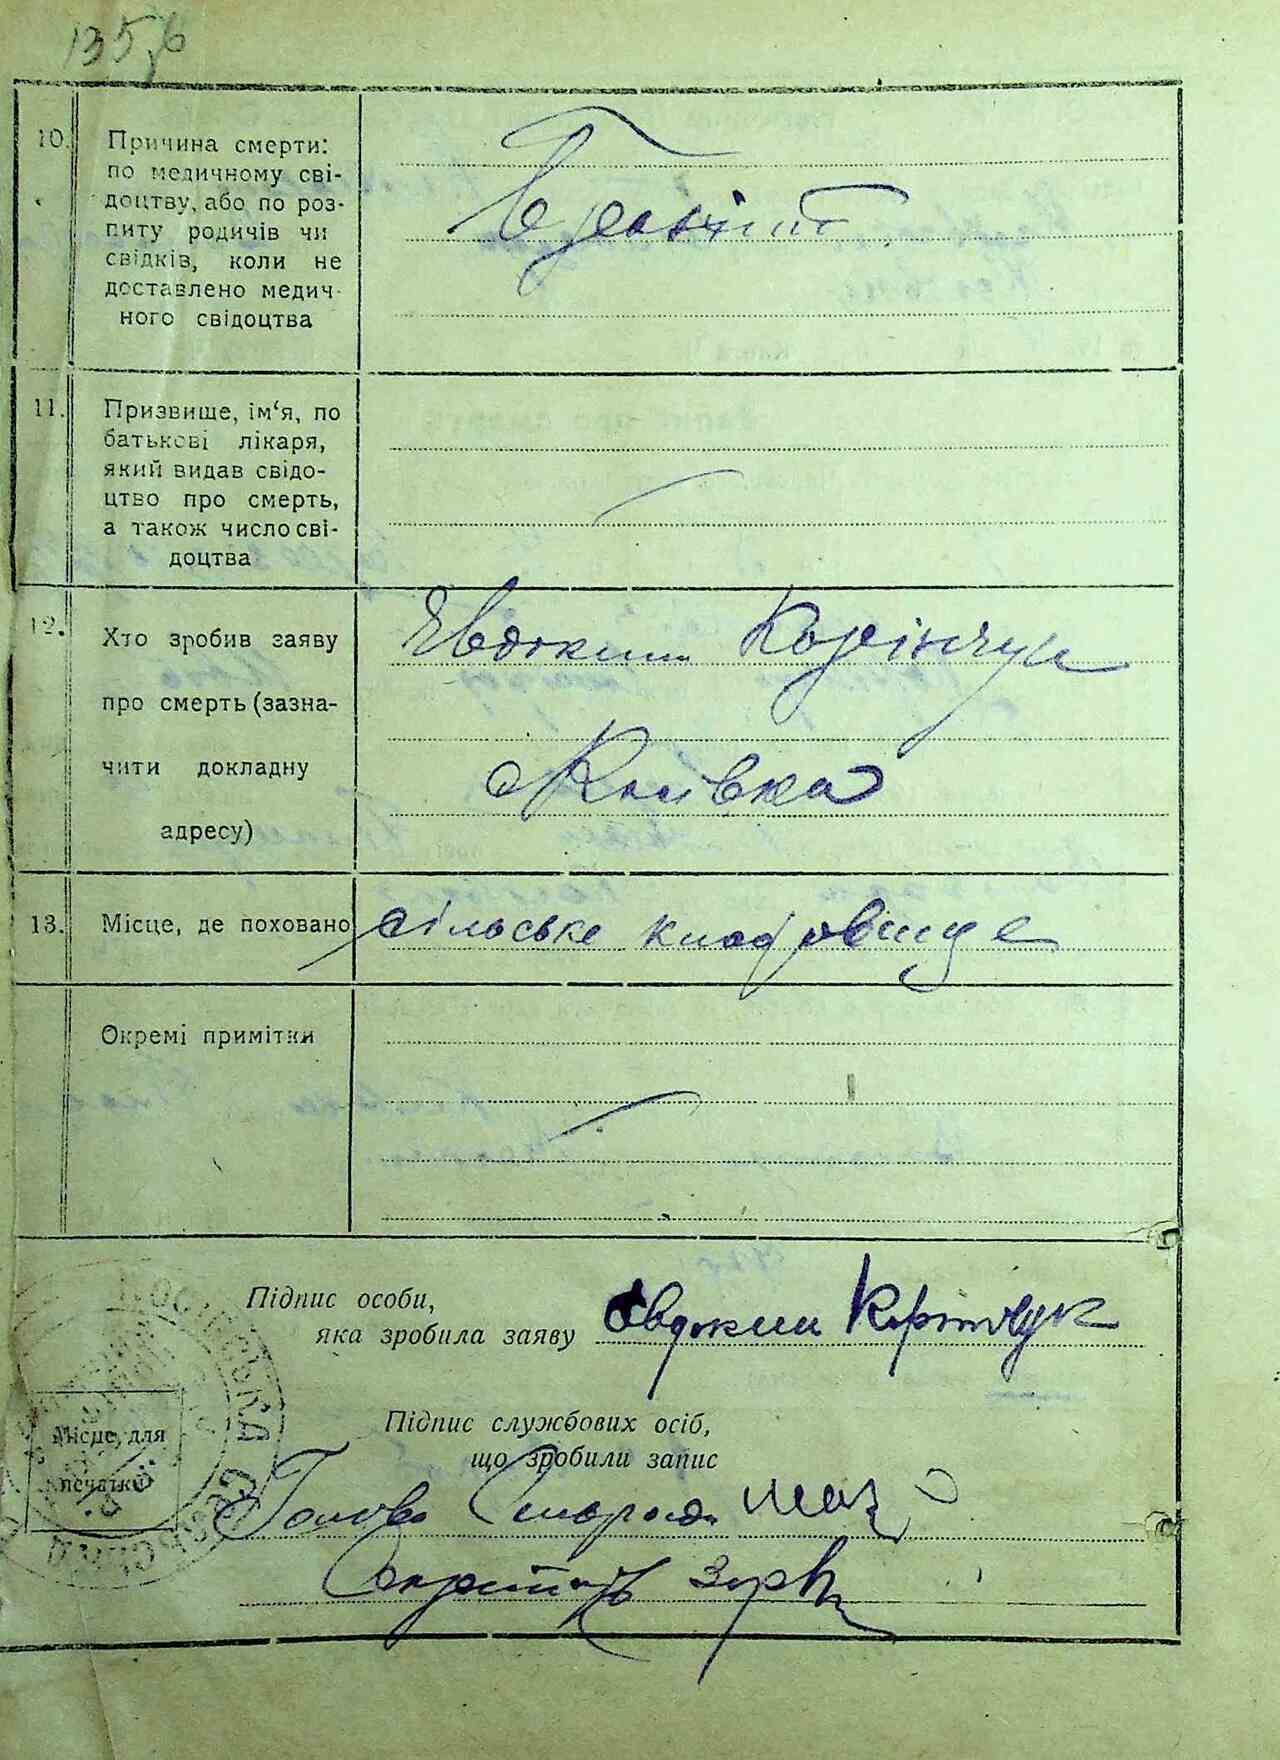 135,6
10. Причина смерти:
по медичному сві-
доцтву, або по роз-
питу родичів чи
свідків, коли не
доставлено медич-
ного свідоцтва
11. Призвище, ім‘я, по
батькові лікаря,
який видав свідо-
цтво про смерть,
а також число сві-
доцтва
12. Хто зробив заяву
про смерть (зазна-
чити докладну
адресу)
Євдоким
13. Місце, де поховано
сільське кладовище
Окремі примітки
Підпис особи,
яка зробила заяву
Євдоким
Місце, для
печатки
Підпис службових осіб,
що зробили запис
Голова
Секретарь